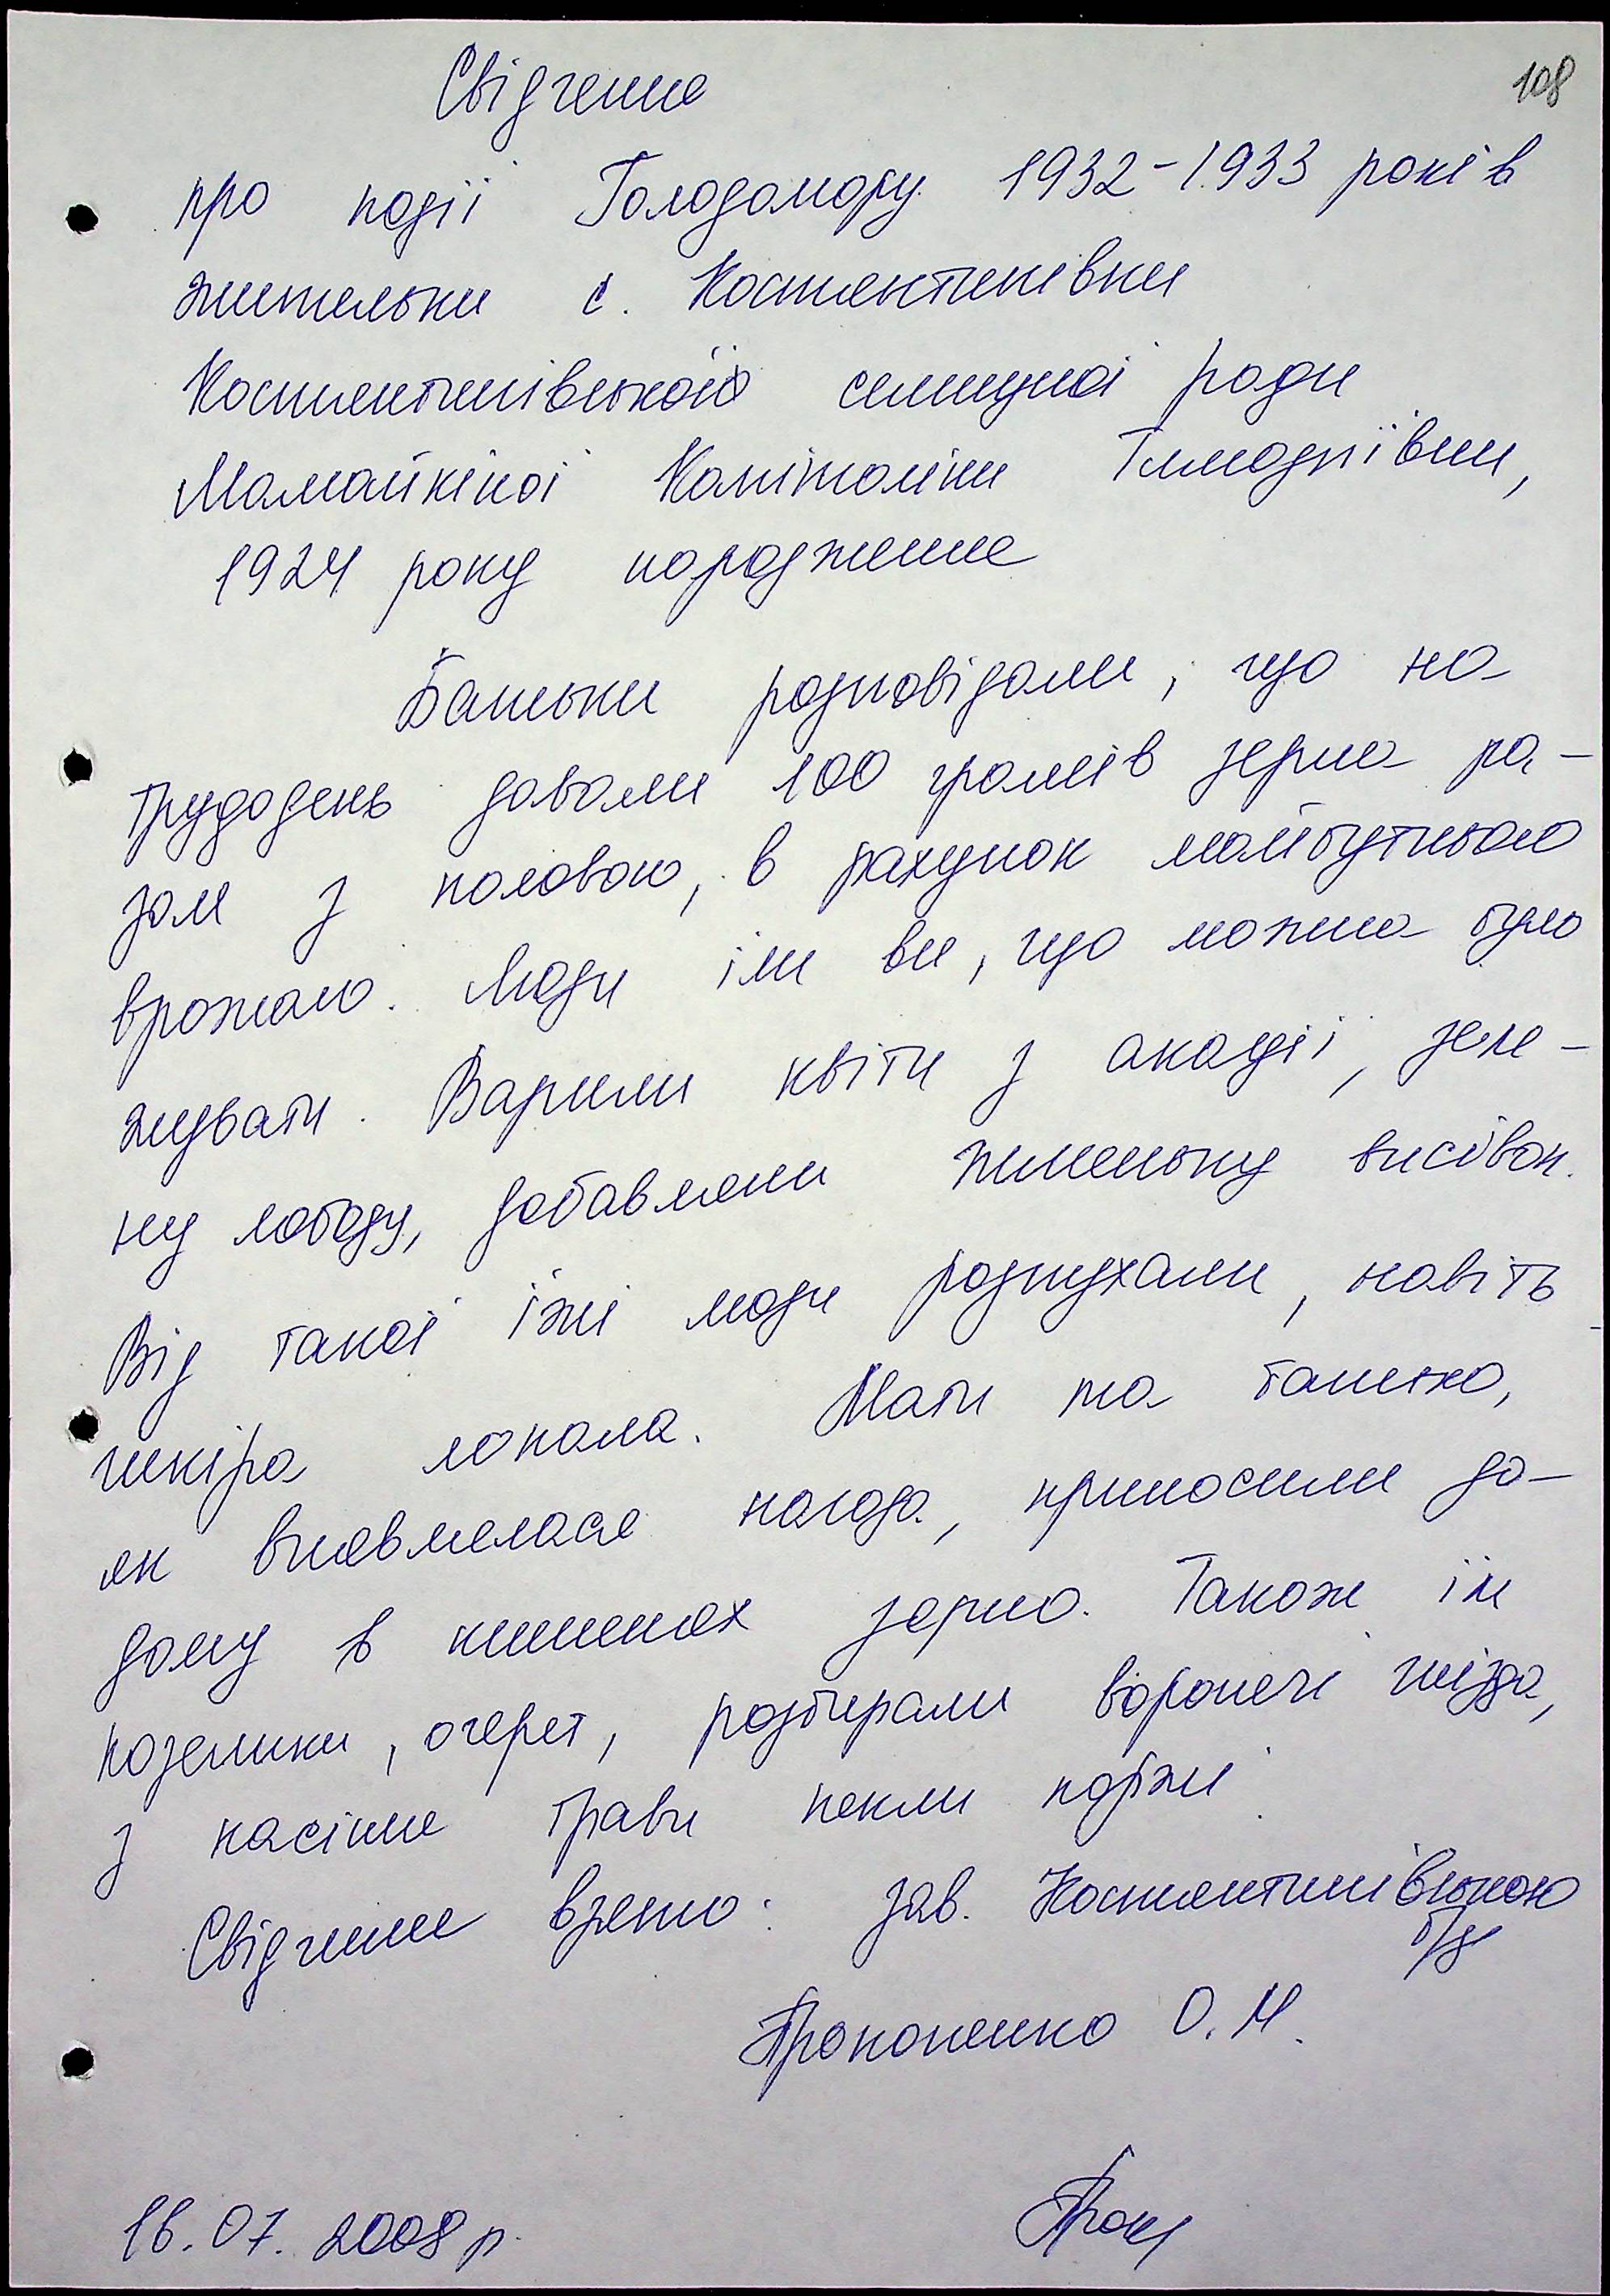 108
Свідчення
про події Голодомору 1932-1933 років
жительки с. Костянтинівки
Костянтинівської селищної ради
Мамайкіної Капітоліни
1924 року народження
Батьки розповідали, що на
трудодень давали 100 грамів зерна ра-
зом з половою, в рахунок майбутнього
врожаю. Люди їли все, що можна було
жувати. Варили квіти з акації, зеле-
ну лободу, добавляли жменьку висівок.
Від такої їжі люди розпухали, навіть
шкіра лопала. Мати та батько,
як виявлялася нагода, приносили до-
дому в кишенях зерно. Також їли
козелики, очерет, розбирали воронечі гнізда,
з насіння трави пекли коржі.
Свідчення взято: зав. Костянтинівською
б/ф
Прокопенко О. М.
16.07.2008 р.